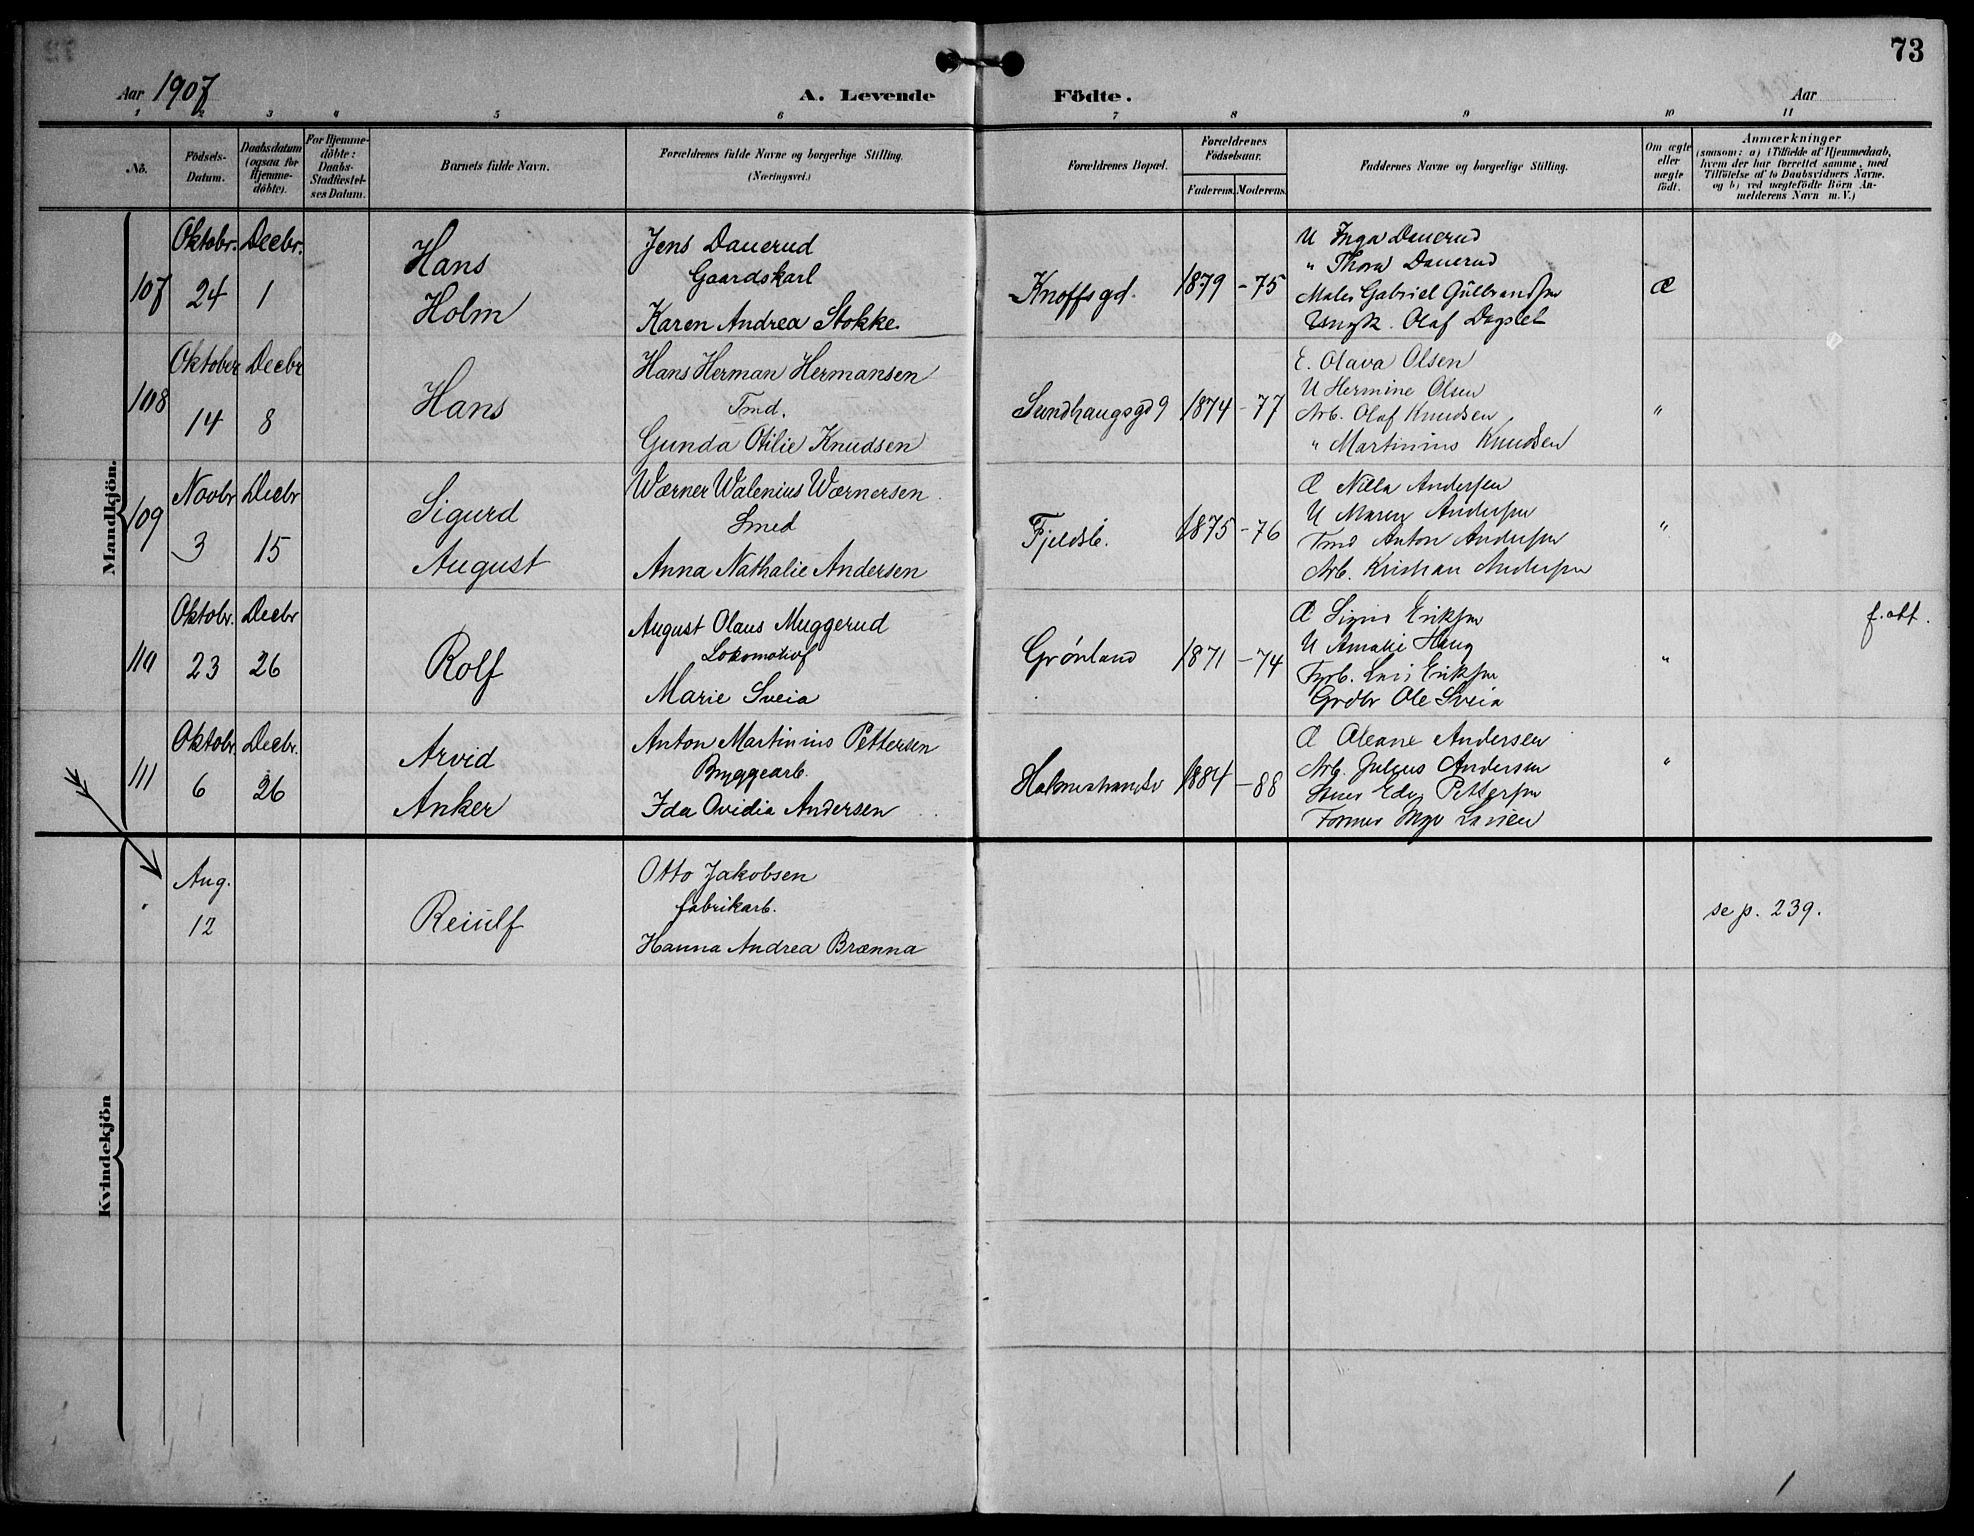 73
Aar 1907
A. Levende Födte.
Aar
1 2 3 4 5 6 7 8 9 10 11
No.
Födsels-Datum.
Daabsdatum (ogsaa for Hjemme-döbte).
For Hjemme-döbte: Daabs-Stadfæstel-ses Datum.
Barnets fulde Navn.
Forældrenes fulde Navne og borgerlige Stilling.
(Næringsvei.)
Forældrenes Bopæl.
Forældrenes Födselsaar.
Faderens. Moderens.
Faddernes Navne og borgerlige Stilling.
Om ægte eller uægte födt.
Anmærkninger
(saasom: a) i Tilfælde af Hjemmedaab,
hvem der har forrettet samme, med
Tilföielse af to Daabsvidners Navne.
og b) ved uægtefödte Börn An-
melderens Navn m. V.)
Mandkjön.
107
Oktobr. 24
Decbr. 1
Hans
Holm
Jens Dauerud
Gaardskarl
Karen Andrea Stokke
Knoffsgd.
1879 - 75
U Inga Dauerud
" Thora Dauerud
Maler Gabriel Gulbrandsen
Ungk. Olaf Dagslet
Æ
108
Oktober 14
Decbr 8
Hans
Hans Herman Hermansen
Tmd.
Gunda Otilie Knudsen
Sundhaugsgd 9
1874 - 77
E. Olava Olsen
U Hermine Olsen
Arb. Olaf Knudsen
" Martinius Knudsen
"
109
Novbr 3
Decbr 15
Sigurd
August
Wærner Walenius Wærnersen
Smed
Anna Nathalie Andersen
Fjeldsb.
1875 - 76
Æ Nilla Andersen
U Maren Andersen
Tmd Anton Andersen
Arb. Kristian Andersen
"
110
Oktobr. 23
Decbr 26
Rolf
August Olaus Muggerud
Lokomotivf
Marie Sveia
Grønland
1871 - 74
Æ Signe Eriksen
U Amalie Haug
Fyrb. Eriksen
Grdbr Ole Sveia
"
f. att.
111
Oktobr. 6
Decbr. 26
Arvid
Anker
Anton Martinius Pettersen
Bryggearb.
Ida Ovidia Andersen
1884 - 88
Æ Oleane Andersen
Arb. Julius Andersen
Pettersen
Former Larsen
"
Kvindekjön
Aug.
12
Reiulf
Otto Jakobsen
fabrikarb.
Hanna Andrea Brænna
se p. 239.